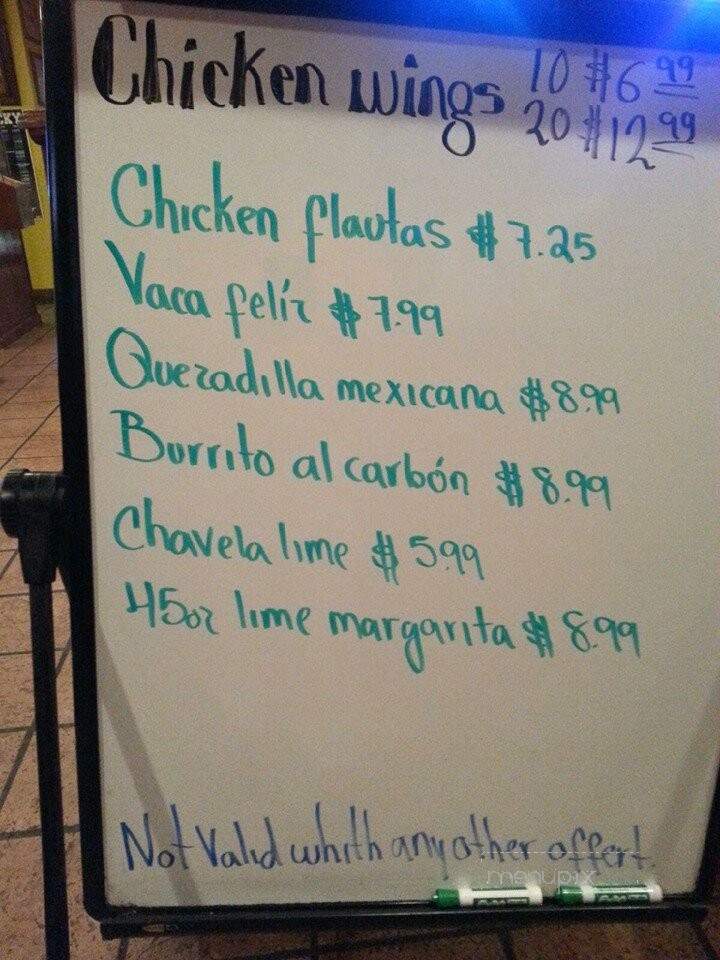 Chicken wings 10 $6.99
20 $12.99
Chicken flautas $7.25
Vaca felíz $7.99
Quezadilla mexicana $8.99
Burrito al carbón $8.99
Chavela lime $5.99
45oz lime margarita $8.99
Not Valid whith any other offert.
menupix